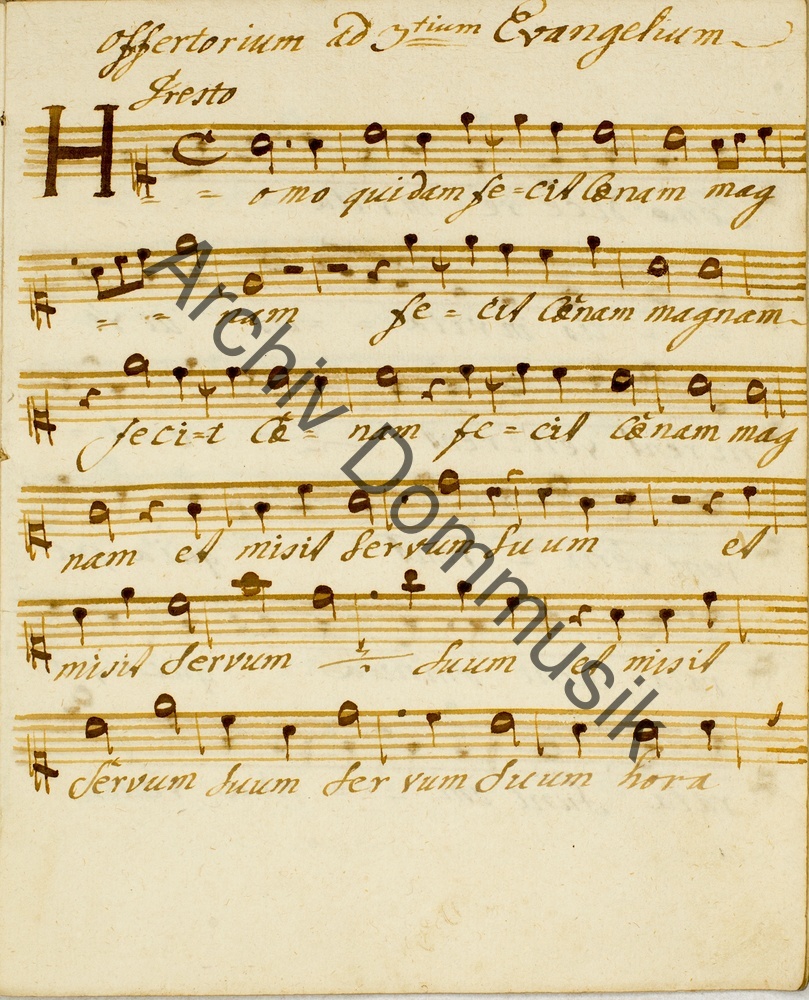 Offertorium ad 3tium Evangelium
Presto
H - - omo quidam fe = cit Cœnam mag
= = nam fe = cit Cœnam magnam
feci=t Cœ = nam fe = cit Cœnam mag
nam et misit Servum Suum et
misit Servum Suum et misit
Servum Suum Servum Suum hora
Archiv Dommusik